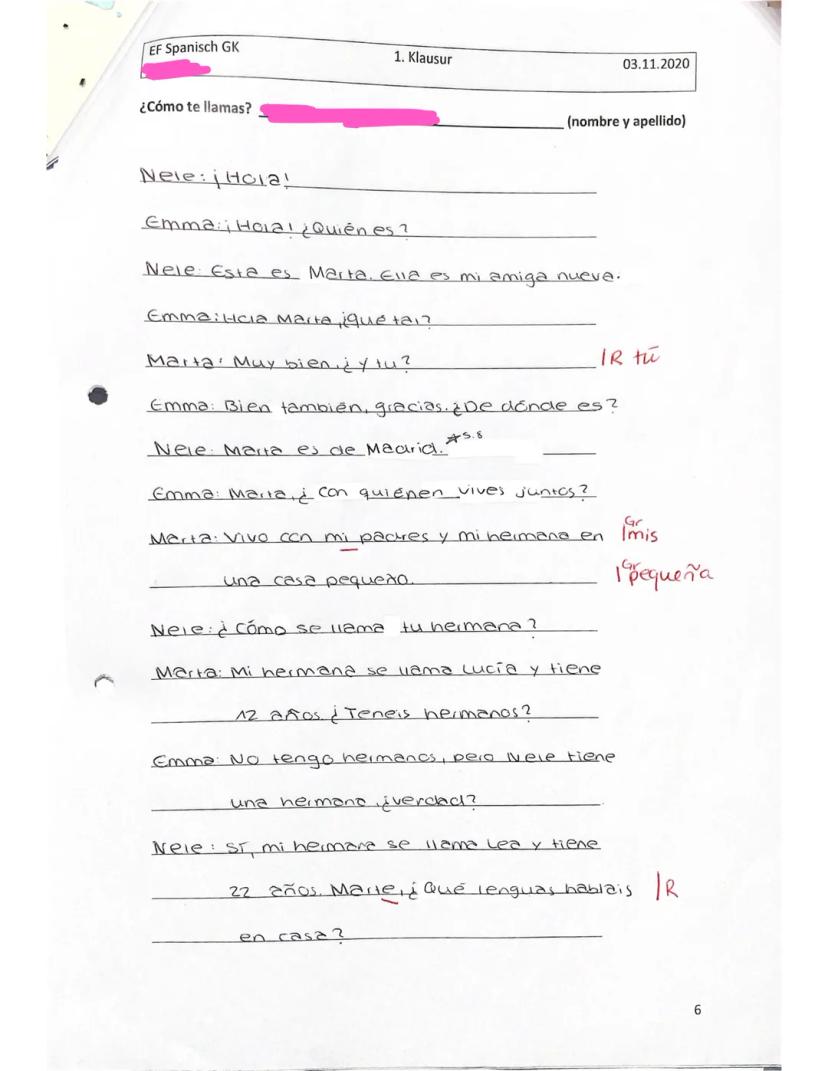 EF Spanisch GK
1. Klausur
03.11.2020
¿Cómo te llamas?
(nombre y apellido)
Nele: ¡Hola!
Emma: ¡Hola! ¿Quién es?
Nele: Esta es Marta. Ella es mi amiga nueva.
Emma: Hola Marta, ¿qué tal?
Marta: Muy bien, ¿y tu? |R tú
Emma: Bien también, gracias. ¿De dónde es?
Nele: Marta es de Madrid. *S.8
Emma: Marta, ¿con quiénen vives juntos?
Marta: Vivo con mi padres y mi hermana en |Gr mis
una casa pequeño. |Gr pequeña
Nele: ¿Cómo se llama tu hermana?
Marta: Mi hermana se llama Lucía y tiene
12 años. ¿Teneis hermanos?
Emma: No tengo hermanos, pero Nele tiene
una hermana, ¿verdad?
Nele: Sí, mi hermana se llama Lea y tiene
22 años. Marte, ¿Qué lenguas hablais |R
en casa?
6